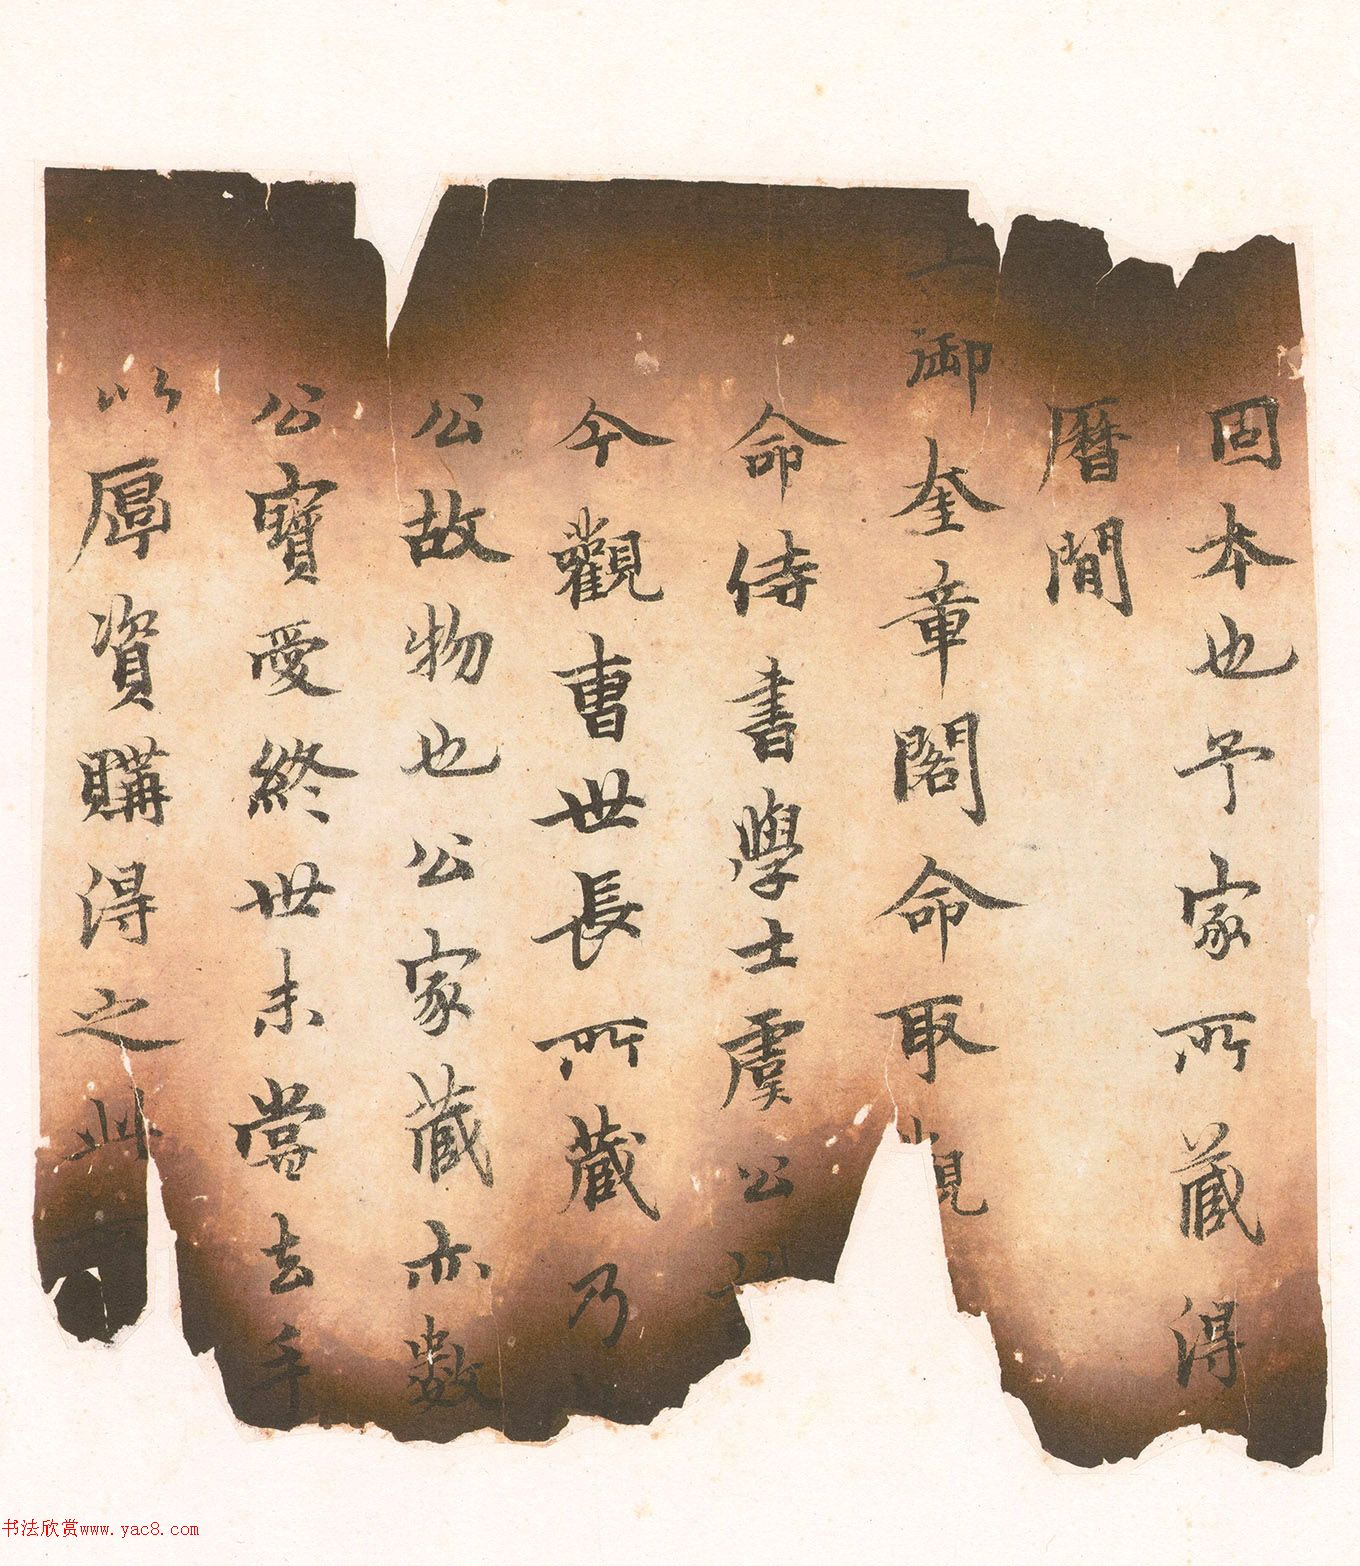 固本也予家所藏得
曆間
上御奎章閣命取觀
命侍書學士虞公
今觀曹世長所藏乃
公故物也公家藏亦數
公寶愛終世未嘗去手
以厚資購得之此
书法欣赏www.yac8.com